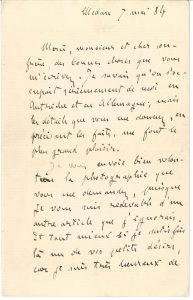 Médan 7 mai 84
Merci, monsieur et cher con-
frère des bonnes choses que vous
m'écrivez. Je savais qu'on s'oc-
cupait sérieusement de moi en
Autriche et en Allemagne; mais
les détails que vous me donnez, en
précisant les faits, me font le
plus grand plaisir.
Je vous envoie bien volon-
tiers la photographie que
vous me demandez, puisque
je vous suis redevable d'un
autre article que j'ignorais.
Et tant mieux si je satisfais
là un de vos petits désirs,
car je suis très heureux de